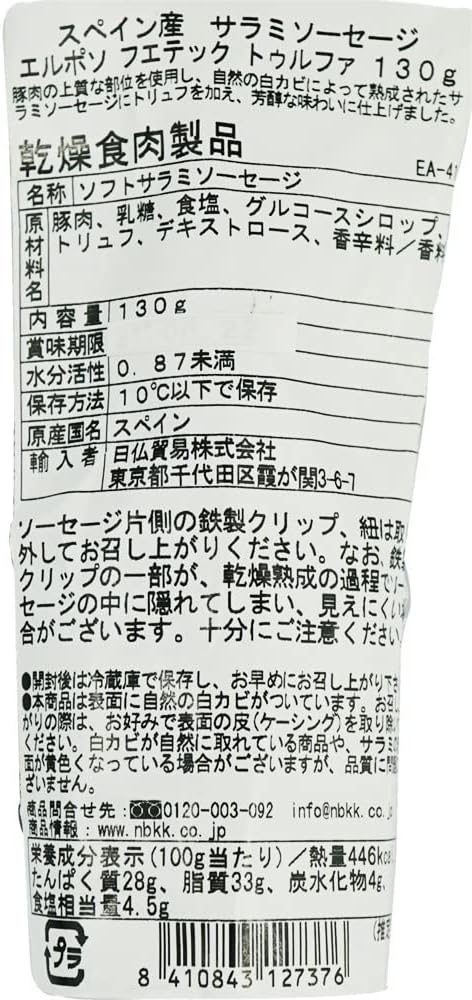 スペイン産 サラミソーセージ
エルポソ フエテック トゥルファ 130g
豚肉の上質な部位を使用し、自然の白カビによって熟成されたサ
ラミソーセージにトリュフを加え、芳醇な味わいに仕上げました。
乾燥食肉製品 EA-41
名称 ソフトサラミソーセージ
原材料名 豚肉、乳糖、食塩、グルコースシロップ、
トリュフ、デキストロース、香辛料／香料
内容量 130g
賞味期限
水分活性 0.87未満
保存方法 10℃以下で保存
原産国名 スペイン
輸入者 日仏貿易株式会社
東京都千代田区霞が関3-6-7
ソーセージ片側の鉄製クリップ、紐は取
外してお召し上がりください。なお、鉄
クリップの一部が、乾燥熟成の過程でソー
セージの中に隠れてしまい、見えにくい
合がございます。十分にご注意ください。
●開封後は冷蔵庫で保存し、お早めにお召し上がり下さ
●本商品は表面に自然の白カビがついています。お召し
がりの際は、お好みで表面の皮(ケーシング)を取り除
ください。白カビが自然に取れている商品や、サラミの
面が黄色くなっている場合がございますが、品質に問題
ざいません。
商品問合せ先：0120-003-092 info@nbkk.co.jp
商品情報：www.nbkk.co.jp
栄養成分表示(100g当たり)／熱量446kc
たんぱく質28g、脂質33g、炭水化物4g、
食塩相当量4.5g
プラ
8 410843 127376